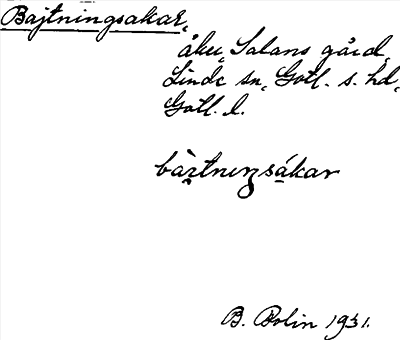 Bajtningsakar,
åker, Salans gård,
Linde sn, Gotl. s. hd,
Gotl. l.
bàɪtnɪŋsákar
B. Bolin 1931.